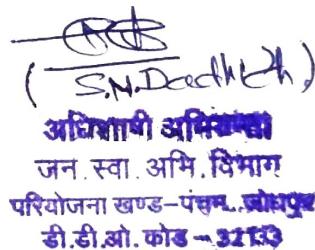 (S.N. Dadhich)
अधिशाषी अभियन्ता
जन.स्वा.अभि.विभाग
परियोजना खण्ड-पंचम, जोधपुर
डी.डी.ओ. कोड - 32133